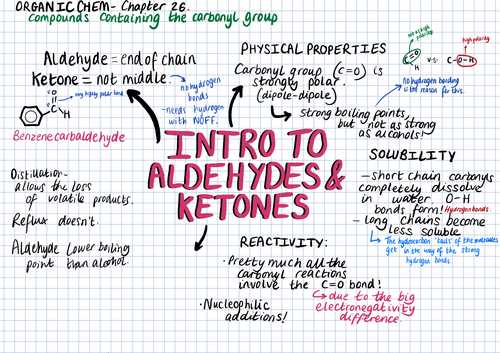 ORGANIC CHEM - Chapter 26.
compounds containing the carbonyl group
Aldehyde = end of chain
Ketone = not middle.
O
C
H
very highly polar bond
Benzenecarbaldehyde
no hydrogen
bonds
- needs hydrogen
with NOFF.
PHYSICAL PROPERTIES
Carbonyl group (C=O) is
strongly polar.
(dipole-dipole)
strong boiling points,
but not as strong
as alcohols!
not as high
polarity
C=O
v.s.
C-O-H
high polarity
no hydrogen bonding
is the reason for this.
INTRO TO
ALDEHYDES &
KETONES
SOLUBILITY
- short chain carbonyls
completely dissolve
in water. O-H
bonds form! Hydrogen bonds.
- long chains become
less soluble
The hydrocarbon 'tails' of the molecules
get in the way of the strong
hydrogen bonds.
Distillation-
allows the loss
of volatile products.
Reflux doesn't.
Aldehyde lower boiling
point than alcohol.
REACTIVITY:
· Pretty much all the
carbonyl reactions
involve the C=O bond!
due to the big
electronegativity
difference.
· Nucleophilic
additions!